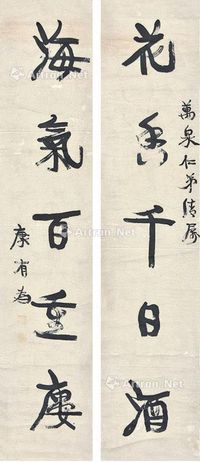 花香千日酒
萬泉仁弟清屬
海氣百重廔
康有為
Artron.Net
Artron.Net